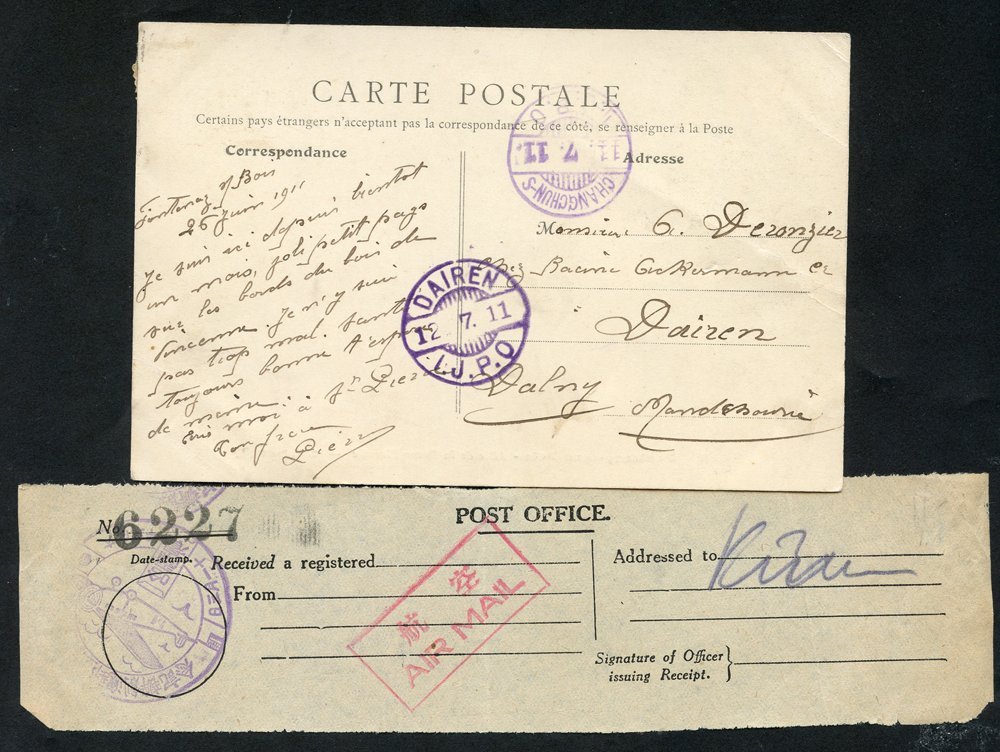 CARTE POSTALE
Certains pays étrangers n'acceptant pas la correspondance de ce côté, se renseigner à la Poste
Correspondance
Fontenay s/ Bois
26 juin 1911
Je suis ici depuis bientot
un mois, joli petit pays
sur les bords du bois de
Vincenne. Je n'y suis
pas trop mal. Santé
toujours bonne
de même
Ton frère
Pierr
Adresse
11. 7. 11.
CHANGCHUN-S
Monsieur G. Deronzier
chez Racine Ackermann et
Dairen
Dalny
Mandchourie
DAIREN
12 7. 11
I.J.P.O
No 6227
POST OFFICE.
Date-stamp.
Received a registered
From
航空
AIR MAIL
Addressed to
Signature of Officer
issuing Receipt.